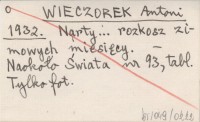 WIECZOREK Antoni
1932. Narty... rozkosz zi-
mowych miesięcy. –
Naokoło Świata nr 93, tabl.
Tylko fot.